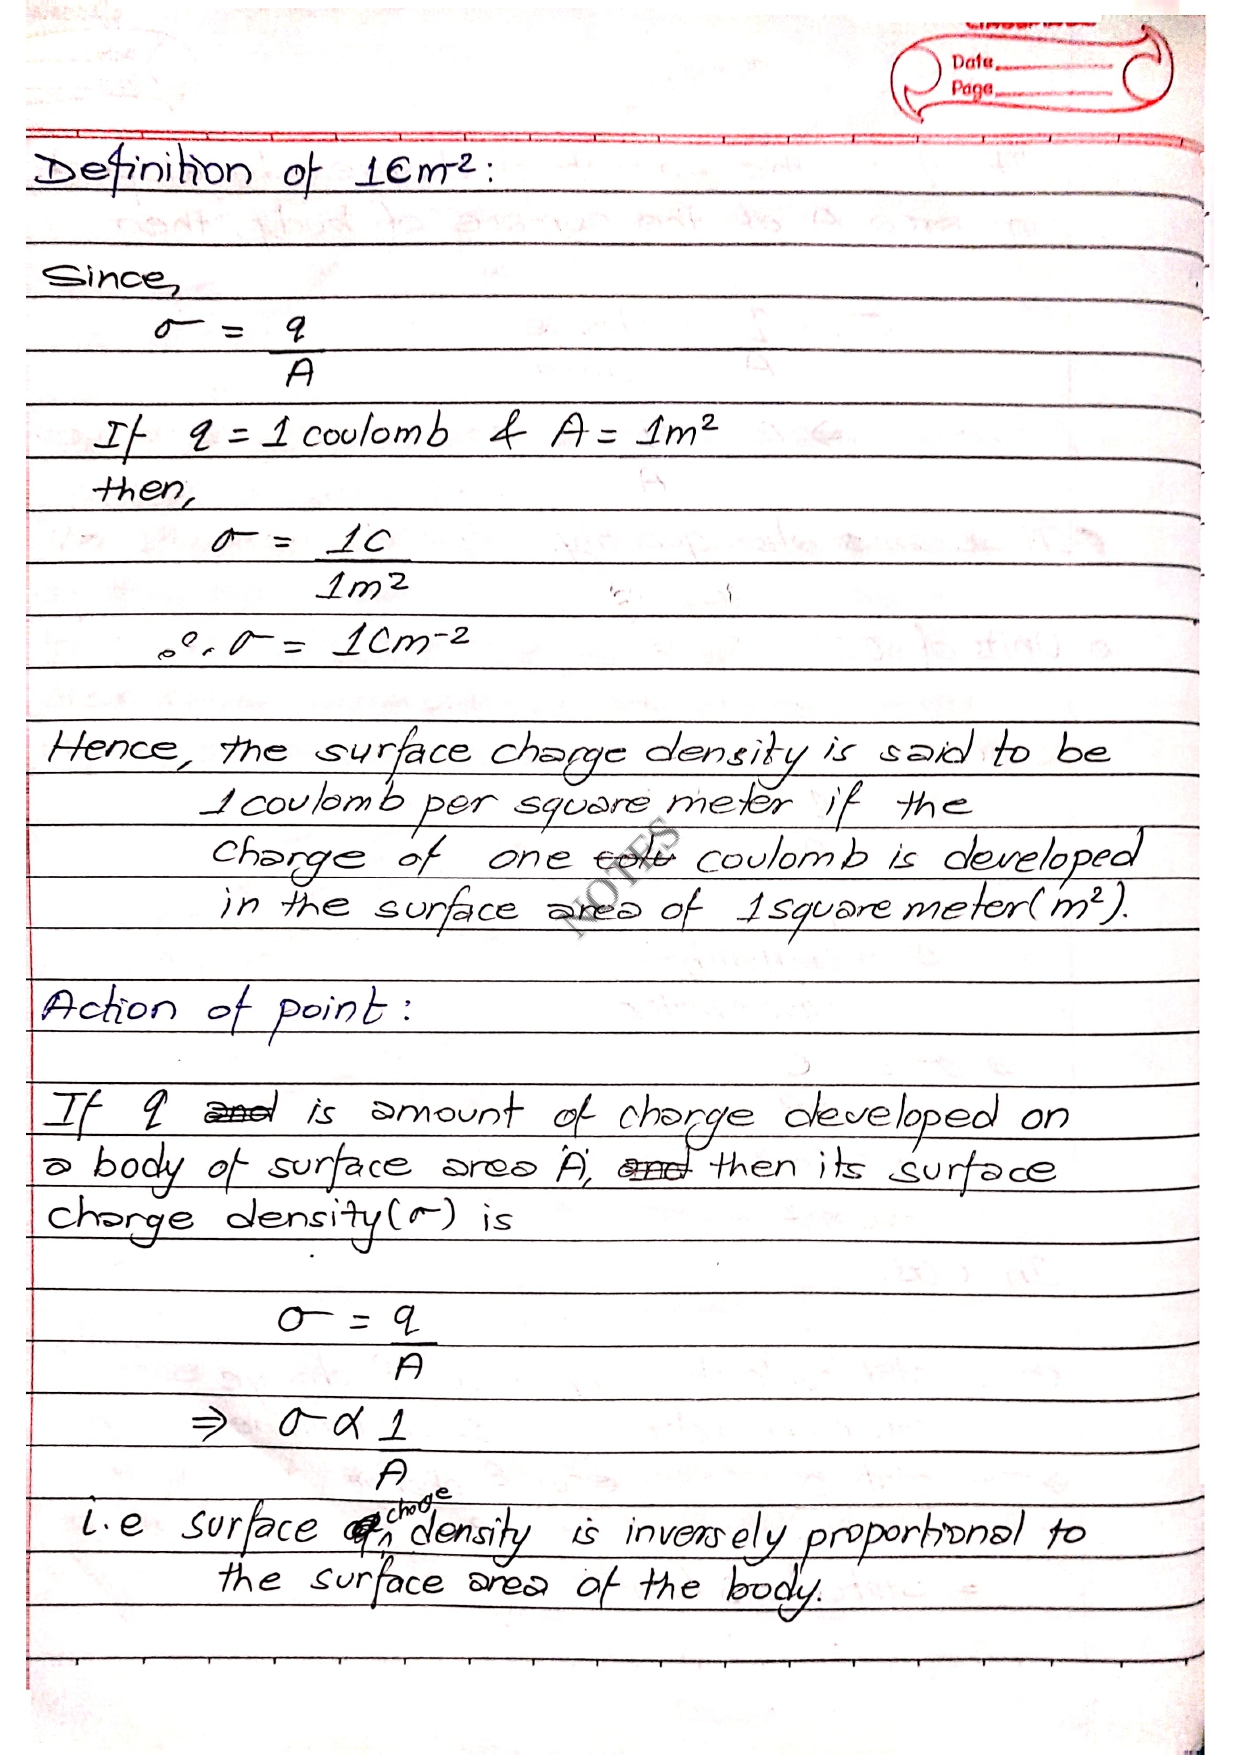 Date
Page
Definition of 1Cm-²:
Since,
σ = q
A
If q = 1 coulomb & A = 1m²
then,
σ = 1C
1m²
∴ σ = 1Cm-²
Hence, the surface charge density is said to be
1 coulomb per square meter if the
charge of one coulomb is developed
in the surface area of 1 square meter(m²).
NOTES
Action of point:
If q is amount of charge developed on
a body of surface area 'A', then its surface
charge density(σ) is
σ = q
A
⇒ σ ∝ 1
A
i.e surface charge density is inversely proportional to
the surface area of the body.